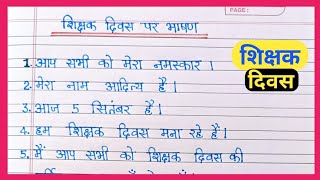 PAGE :
शिक्षक दिवस पर भाषण
शिक्षक
दिवस
1. आप सभी को मेरा नमस्कार ।
2. मेरा नाम आदित्य है ।
3. आज 5 सितंबर है ।
4. हम शिक्षक दिवस मना रहे हैं ।
5. मैं आप सभी को शिक्षक दिवस की